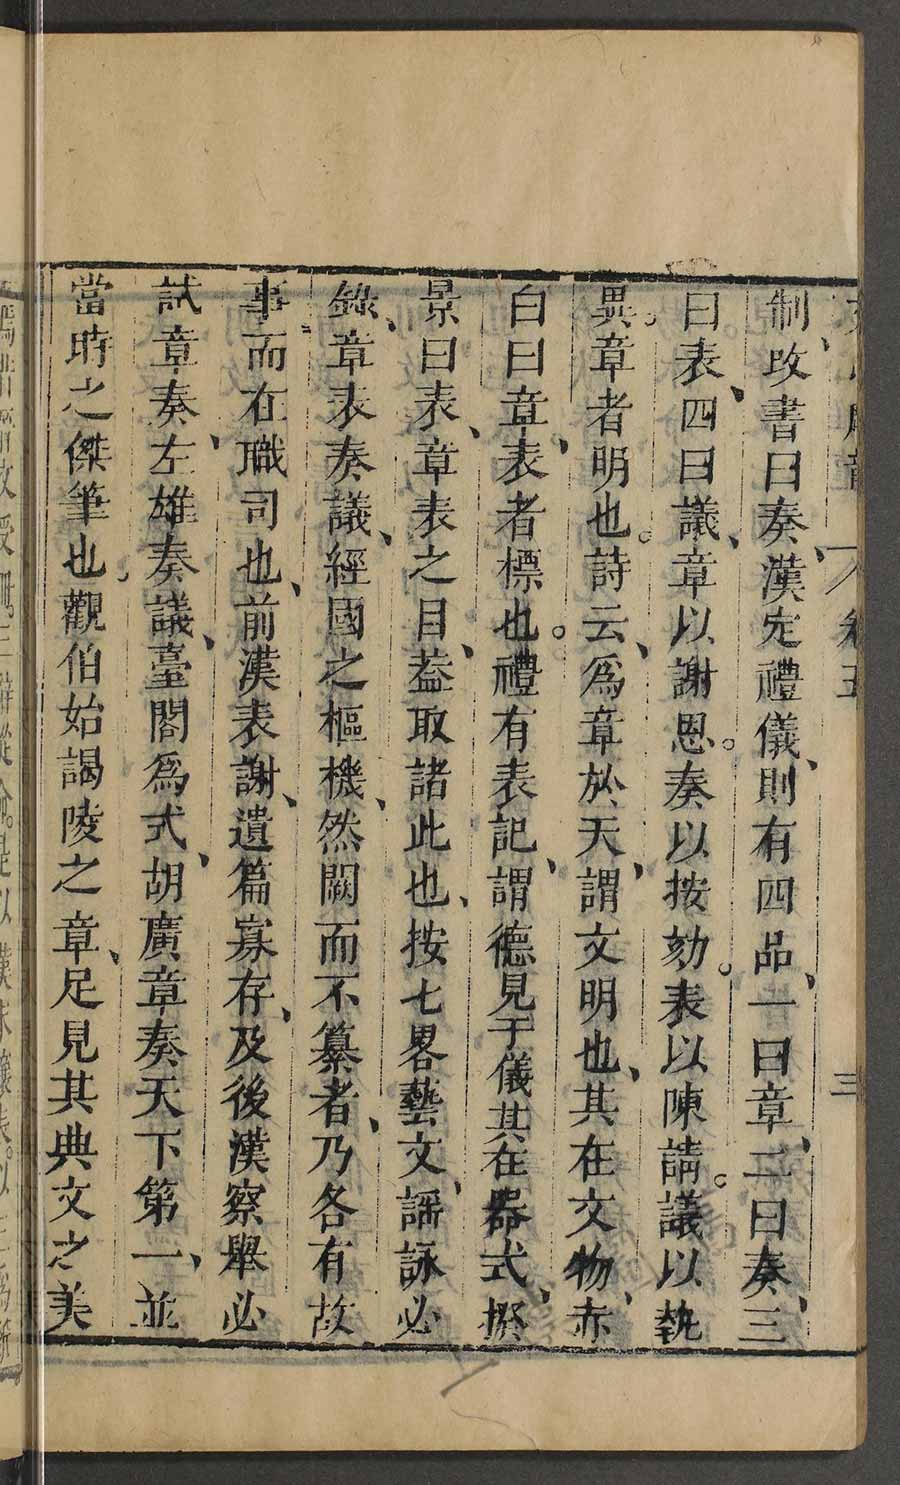 制改書曰奏、漢定禮儀、則有四品、一曰章、二曰奏、三
曰表、四曰議、章以謝恩。奏以按劾。表以陳請。議以執
異。章者明也。詩云、爲章於天、謂文明也、其在文物、赤
白曰章、表者標也。禮有表記、謂德見于儀其在器式、揆
景曰表、章表之目、葢取諸此也、按七畧藝文、謡詠必
錄、章表奏議、經國之樞機、然闕而不纂者、乃各有故
事、而在職司也、前漢表謝、遺篇寡存、及後漢察舉必
試章奏、左雄奏議、臺閣爲式、胡廣章奏天下第一、並
當時之傑筆也。觀伯始謁陵之章、足見其典文之美